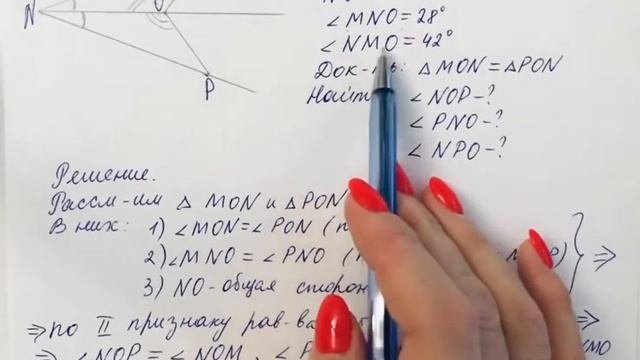 N
P
∠MNO = 28°
∠NMO = 42°
Док-ть: △ MON = △ PON
Найти ∠ NOP - ?
∠ PNO - ?
∠ NPO - ?
Решение.
Рассм-им △ MON и △ PON
В них: 1) ∠ MON = ∠ PON (
2) ∠ MNO = ∠ PNO (
3) NO - общая ⇒
⇒ по II признаку
⇒ ∠ NOP = ∠ NOM,